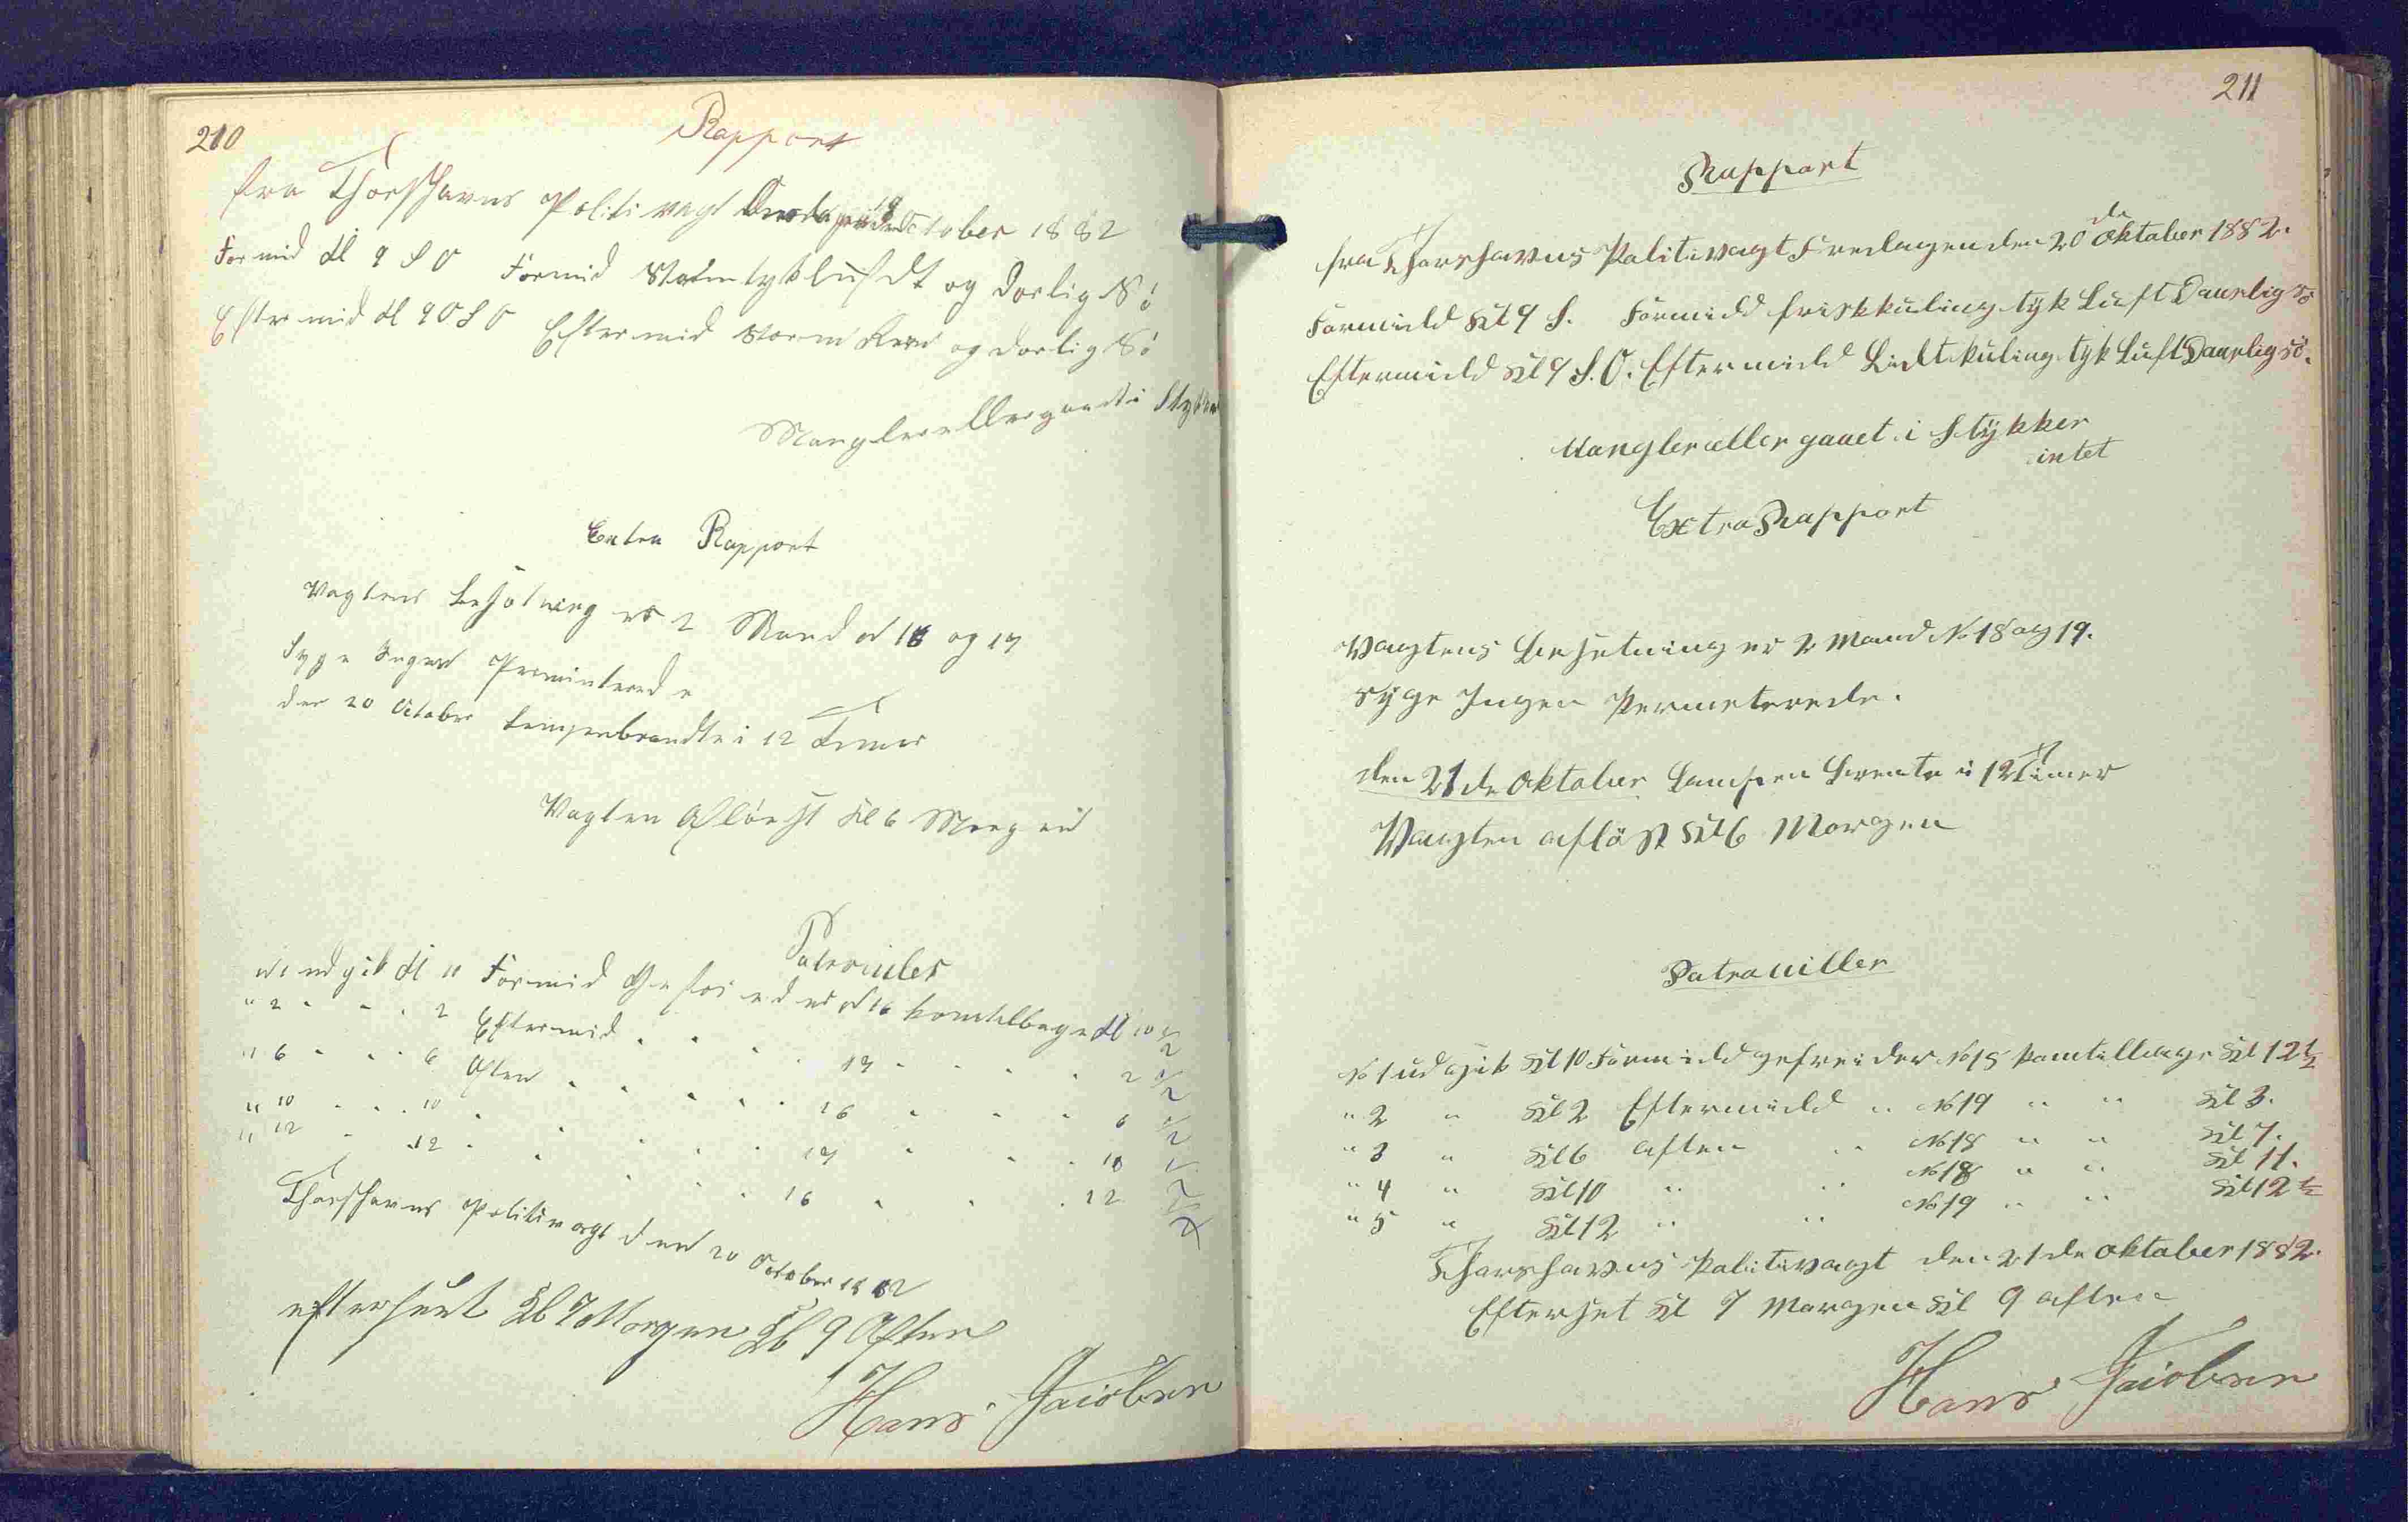 210
Rapport
fra Thorshavns Politivagt 19 October 1882
Formid Kl 9 S O Formid Storm tyk luft og Dorlig Sö
Eftermid Kl 9 O S O Eftermid Storm og dorlig Sö
Mangler eller gaaet i Stykker
Extra Rapport
Vagtens besetning er 2 Mand No 16 og 17
Syge Ingen Permiterede
den 20 October Lampen brændte i 12 Timer
Vagten Aflöst Kl 6 Morgen
Patrouiler
No 1 udgik Kl 10 Formid Gefreider No 16 kom tilbage Kl 10 1/2
" 2 " " " 2 Eftermid " " " 17 " " " 2 1/2
" 6 " " " 6 Aften " " " 16 " " " 6 1/2
" 10 " " " 10 " " " " 17 " " " 10 1/2
" 12 " " 12 " " " " 16 " " " 12 1/2
Thorshavns Politivagt den 20 October 1882
efterseet Kl 7 Morgen Kl 9 Aften
Hans Jacobsen
211
Rapport
fra Thorshavns Politivagt Fredagen den 20de Oktober 1882.
Formidd Kl 9 S. Formidd frisk kuling tyk Luft Daarlig sö
Eftermidd Kl 9 S.O. Eftermidd Lidt kuling tyk Luft Daarlig sö.
Mangler eller gaaet i Stykker
intet
Extra Rapport
Vagtens besetning er 2 Mand No 18 og 19.
Syge Ingen Permeterede.
den 21de Oktober Lampen brente i 12 Timer
Vagten aflöst Kl 6 Morgen
Patrouiller
No 1 udgik Kl 10 Formidd gefreider No 18 kom tilbage Kl 12 1/2
" 2 " Kl 2 Eftermidd " No 19 " " Kl 3.
" 3 " Kl 6 aften " No 18 " " Kl 7.
" 4 " Kl 10 " " No 18 " " Kl 11.
" 5 " Kl 12 " " No 19 " " Kl 12 1/2
Thorshavns Politivagt den 21de Oktober 1882.
Efterset Kl 7 Morgen Kl 9 aften
Hans Jacobsen